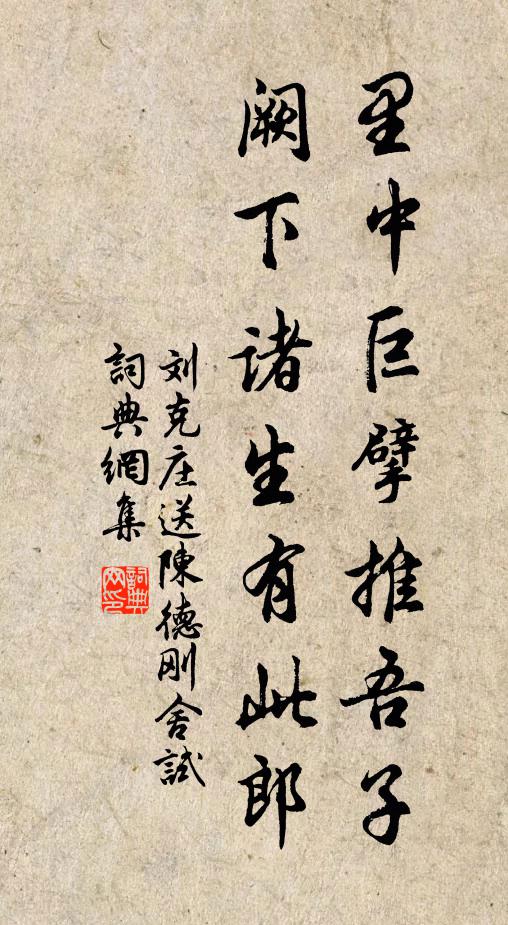 里中巨擘推吾子
阙下诸生有此郎
刘克庄送陳德刚舍試
詞典網集
詞典
网印